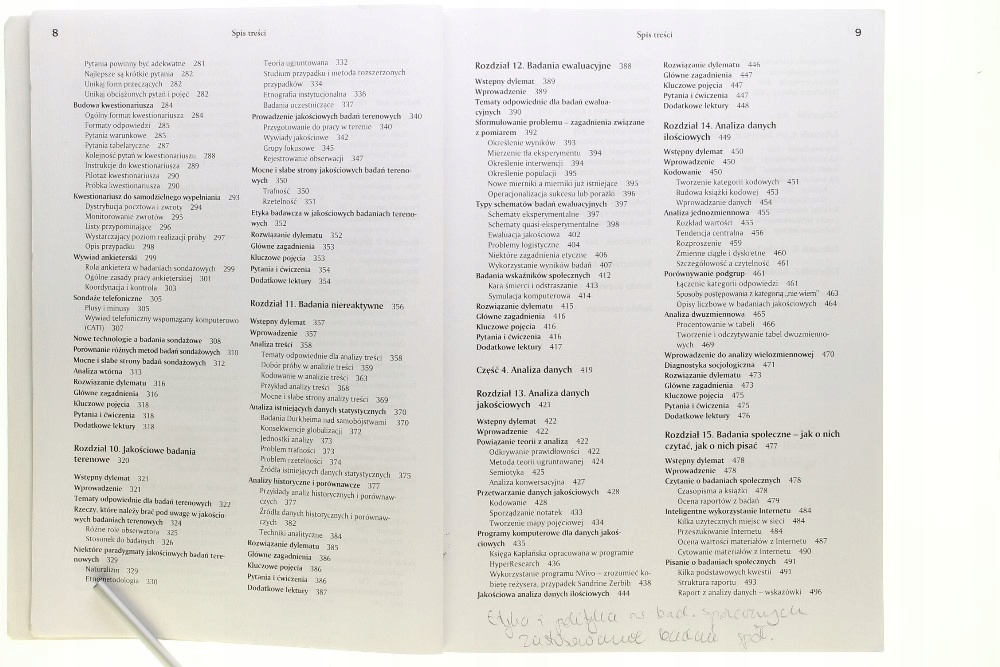 8
Spis treści
Pytania powinny być adekwatne 281
Najlepsze są krótkie pytania 282
Unikaj form przeczących 282
Unikaj obciążonych pytań i pojęć 282
Budowa kwestionariusza 284
Ogólny format kwestionariusza 284
Formaty odpowiedzi 285
Pytania warunkowe 285
Pytania tabelaryczne 287
Kolejność pytań w kwestionariuszu 288
Instrukcje do kwestionariusza 289
Pilotaż kwestionariusza 290
Próbka kwestionariusza 290
Kwestionariusz do samodzielnego wypełniania 293
Dystrybucja pocztowa i zwroty 294
Monitorowanie zwrotów 295
Listy przypominające 296
Wystarczający poziom realizacji próby 297
Opis przypadku 298
Wywiad ankieterski 299
Rola ankietera w badaniach sondażowych 299
Ogólne zasady pracy ankieterskiej 301
Koordynacja i kontrola 303
Sondaże telefoniczne 305
Plusy i minusy 305
Wywiad telefoniczny wspomagany komputerowo
(CATI) 307
Nowe technologie a badania sondażowe 308
Porównanie różnych metod badań sondażowych 310
Mocne i słabe strony badań sondażowych 312
Analiza wtórna 313
Rozwiązanie dylematu 316
Główne zagadnienia 316
Kluczowe pojęcia 318
Pytania i ćwiczenia 318
Dodatkowe lektury 318
Rozdział 10. Jakościowe badania
terenowe 320
Wstępny dylemat 321
Wprowadzenie 321
Tematy odpowiednie dla badań terenowych 322
Rzeczy, które należy brać pod uwagę w jakościo-
wych badaniach terenowych 324
Różne role obserwatora 325
Stosunek do badanych 326
Niektóre paradygmaty jakościowych badań tere-
nowych 329
Naturalizm 329
Etnometodologia 330
Teoria ugruntowana 332
Studium przypadku i metoda rozszerzonych
przypadków 334
Etnografia instytucjonalna 336
Badania uczestniczące 337
Prowadzenie jakościowych badań terenowych 340
Przygotowanie do pracy w terenie 340
Wywiady jakościowe 342
Grupy fokusowe 345
Rejestrowanie obserwacji 347
Mocne i słabe strony jakościowych badań tereno-
wych 350
Trafność 350
Rzetelność 351
Etyka badawcza w jakościowych badaniach tereno-
wych 352
Rozwiązanie dylematu 352
Główne zagadnienia 353
Kluczowe pojęcia 353
Pytania i ćwiczenia 354
Dodatkowe lektury 354
Rozdział 11. Badania niereaktywne 356
Wstępny dylemat 357
Wprowadzenie 357
Analiza treści 358
Tematy odpowiednie dla analizy treści 358
Dobór próby w analizie treści 359
Kodowanie w analizie treści 363
Przykład analiz treści 368
Mocne i słabe strony analizy treści 369
Analiza istniejących danych statystycznych 370
Badania Durkheima nad samobójstwami 370
Konsekwencje globalizacji 372
Jednostki analizy 373
Problem trafności 373
Problem rzetelności 374
Źródła istniejących danych statystycznych 375
Analizy historyczne i porównawcze 377
Przykłady analiz historycznych i porównaw-
czych 377
Źródła danych historycznych i porównaw-
czych 382
Techniki analityczne 384
Rozwiązanie dylematu 385
Główne zagadnienia 386
Kluczowe pojęcia 386
Pytania i ćwiczenia 386
Dodatkowe lektury 387
Spis treści
9
Rozdział 12. Badania ewaluacyjne 388
Wstępny dylemat 389
Wprowadzenie 389
Tematy odpowiednie dla badań ewalua-
cyjnych 390
Sformułowanie problemu – zagadnienia związane
z pomiarem 392
Określenie wyników 393
Mierzenie tła eksperymentu 394
Określenie interwencji 394
Określenie populacji 395
Nowe mierniki a mierniki już istniejące 395
Operacjonalizacja sukcesu lub porażki 396
Typy schematów badań ewaluacyjnych 397
Schematy eksperymentalne 397
Schematy quasi-eksperymentalne 398
Ewaluacja jakościowa 402
Problemy logistyczne 404
Niektóre zagadnienia etyczne 406
Wykorzystanie wyników badań 407
Badania wskaźników społecznych 412
Kara śmierci i odstraszanie 413
Symulacja komputerowa 414
Rozwiązanie dylematu 415
Główne zagadnienia 416
Kluczowe pojęcia 416
Pytania i ćwiczenia 416
Dodatkowe lektury 417
Część 4. Analiza danych 419
Rozdział 13. Analiza danych
jakościowych 421
Wstępny dylemat 422
Wprowadzenie 422
Powiązanie teorii z analizą 422
Odkrywanie prawidłowości 422
Metoda teorii ugruntowanej 424
Semiotyka 425
Analiza konwersacyjna 427
Przetwarzanie danych jakościowych 428
Kodowanie 428
Sporządzanie notatek 433
Tworzenie mapy pojęciowej 434
Programy komputerowe dla danych jakoś-
ciowych 435
Księga Kapłańska opracowana w programie
HyperResearch 436
Wykorzystanie programu NVivo – zrozumieć ko-
bietę reżysera, przypadek Sandrine Zerbib 438
Jakościowa analiza danych ilościowych 444
Rozwiązanie dylematu 446
Główne zagadnienia 447
Kluczowe pojęcia 447
Pytania i ćwiczenia 447
Dodatkowe lektury 448
Rozdział 14. Analiza danych
ilościowych 449
Wstępny dylemat 450
Wprowadzenie 450
Kodowanie 450
Tworzenie kategorii kodowych 451
Budowa książki kodowej 453
Wprowadzanie danych 454
Analiza jednozmiennowa 455
Rozkład wartości 455
Tendencja centralna 456
Rozproszenie 459
Zmienne ciągłe i dyskretne 460
Szczegółowość a czytelność 461
Porównywanie podgrup 461
Łączenie kategorii odpowiedzi 461
Sposoby postępowania z kategorią „nie wiem” 463
Opisy liczbowe w badaniach jakościowych 464
Analiza dwuzmiennowa 465
Procentowanie w tabeli 466
Tworzenie i odczytywanie tabel dwuzmienno-
wych 469
Wprowadzenie do analizy wielozmiennowej 470
Diagnostyka socjologiczna 471
Rozwiązanie dylematu 473
Główne zagadnienia 473
Kluczowe pojęcia 475
Pytania i ćwiczenia 475
Dodatkowe lektury 476
Rozdział 15. Badania społeczne – jak o nich
czytać, jak o nich pisać 477
Wstępny dylemat 478
Wprowadzenie 478
Czytanie o badaniach społecznych 478
Czasopisma a książki 478
Ocena raportów z badań 479
Inteligentne wykorzystanie Internetu 484
Kilka użytecznych miejsc w sieci 484
Przeszukiwanie Internetu 484
Ocena wartości materiałów z Internetu 487
Cytowanie materiałów z Internetu 490
Pisanie o badaniach społecznych 491
Kilka podstawowych kwestii 491
Struktura raportu 493
Raport z analizy danych – wskazówki 496
Etyka i polityka w bad. społecznych
zastosowanie badań społ.